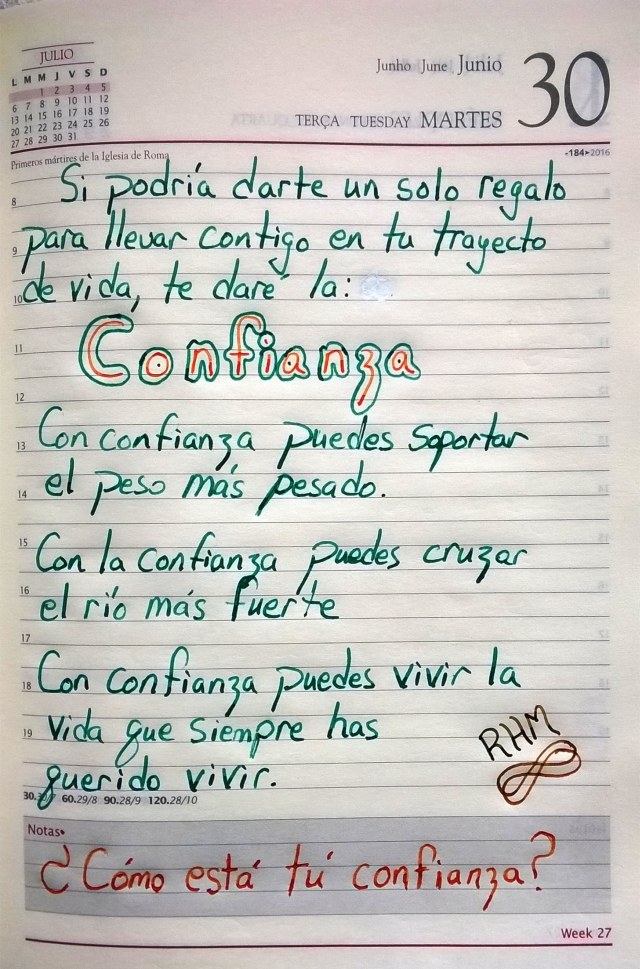 JULIO
L M M J V S D
1 2 3 4 5
6 7 8 9 10 11 12
13 14 15 16 17 18 19
20 21 22 23 24 25 26
27 28 29 30 31
Junho June Junio
30
TERÇA TUESDAY MARTES
Primeros mártires de la Iglesia de Roma
-184▸2016
8 Si podría darte un solo regalo
9 para llevar contigo en tu trayecto
10 de vida, te daré la:
11 Confianza
12
13 Con confianza puedes soportar
14 el peso más pesado.
15 Con la confianza puedes cruzar
16 el río más fuerte
17
18 Con confianza puedes vivir la
19 vida que siempre has
RHM
querido vivir.
30. 60.29/8 90.28/9 120.28/10
Notas•
¿Cómo está tú confianza?
Week 27